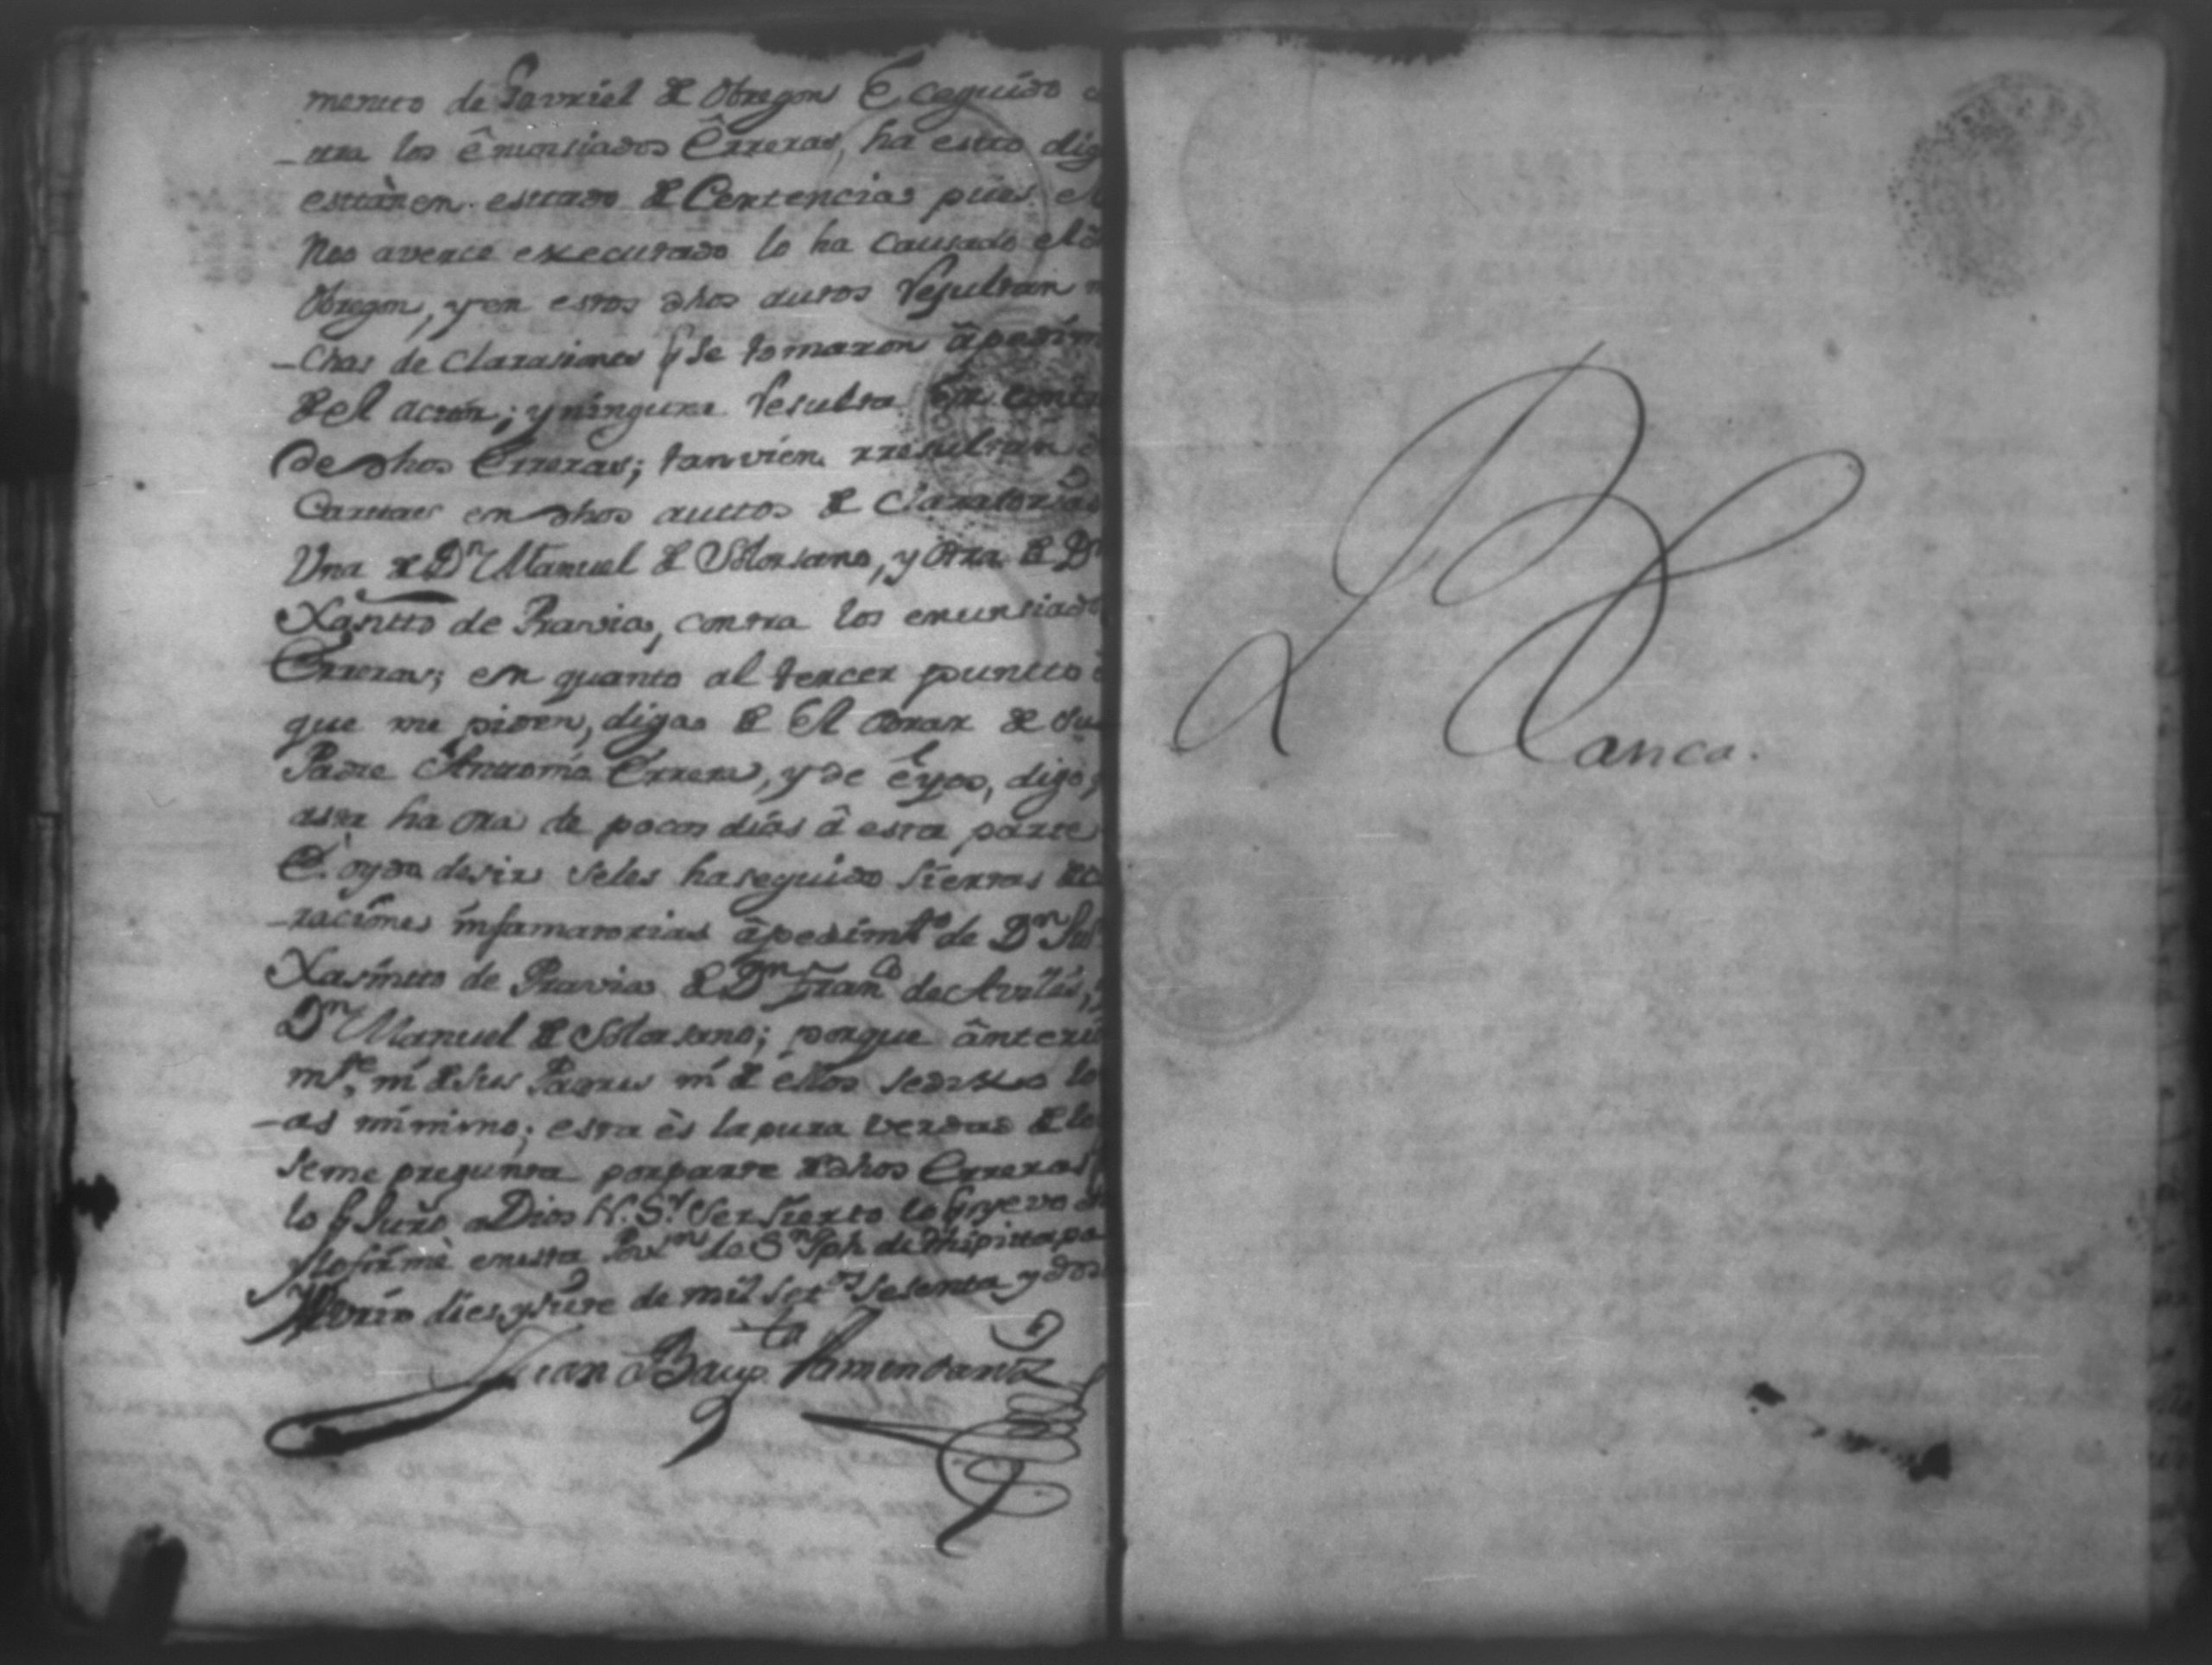 mentto de Gavriel de Obregon E ceguido
-ttra los Enunsiados Erreras, ha estto dig
esttàr en esttado de Centencia pues el
Nos averce executado lo ha causado el
Obregon, y en estos dhos autos Resultan
-chas de clarasiones q se tomaron â pedim
del acttor; y ninguna Resulta en contr
de dhos Erreras; tanvien rresultan
Carttas en dhos auttos de claratorias
Una de Dn Manuel de Solorsano, y otra de Dn
Xasintto de Pravia, contra los enunsiado
Erreras; en quanto al tercer puntto
que me piden, diga de El obrar de su
Padre Anttonio Errera, y de eyos, digo,
asta ha ora de pocos dias â esta parte
E oydo desir seles ha seguido siertas
-raciones infamatorias â pedimto de Dn
Xasintto de Pravia de Dn Franco de Aviles,
Dn Manuel de Solorsano; porque ânteri
mte ni de sus Padres ni de ellos
-as minimo; esta ès la pura verdad de lo
se me pregunta por parte de dhos Erreras
lo q Juro a Dios N. Sr ser sierto lo q yevo
y lo firmè en esta de Sn Jph de
dies y siete de mil settos sesenta y dos
Juan Baupta Amendariz
Blanca.